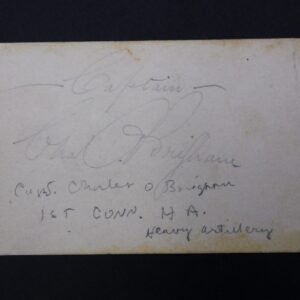 Captain
Chas O Brigham
Capt. Charles O Brigham
1ST CONN. H A.
Heavy artillery